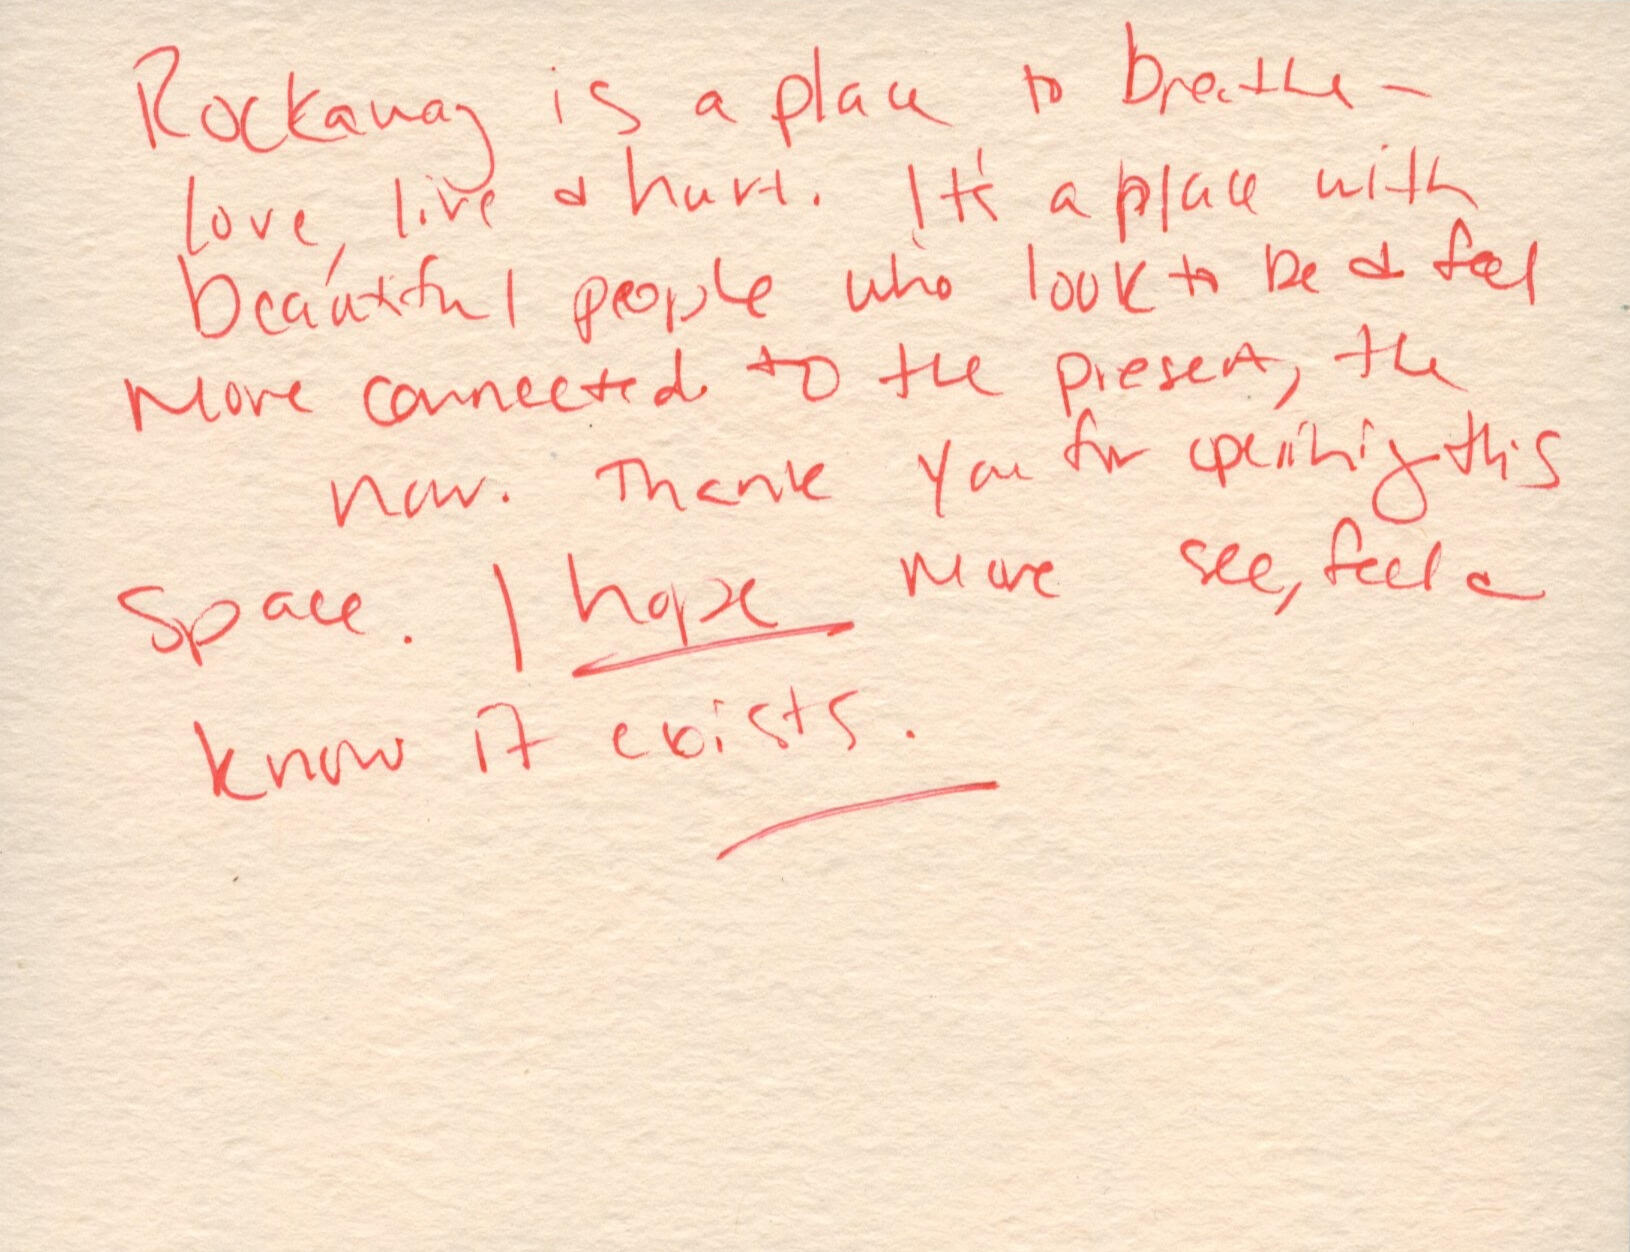 Rockaway is a place to breathe -
love, live & hurt. It's a place with
beautiful people who look to be & feel
more connected to the present, the
now. Thank you for opening this
space. I hope more see, feel &
know it exists.